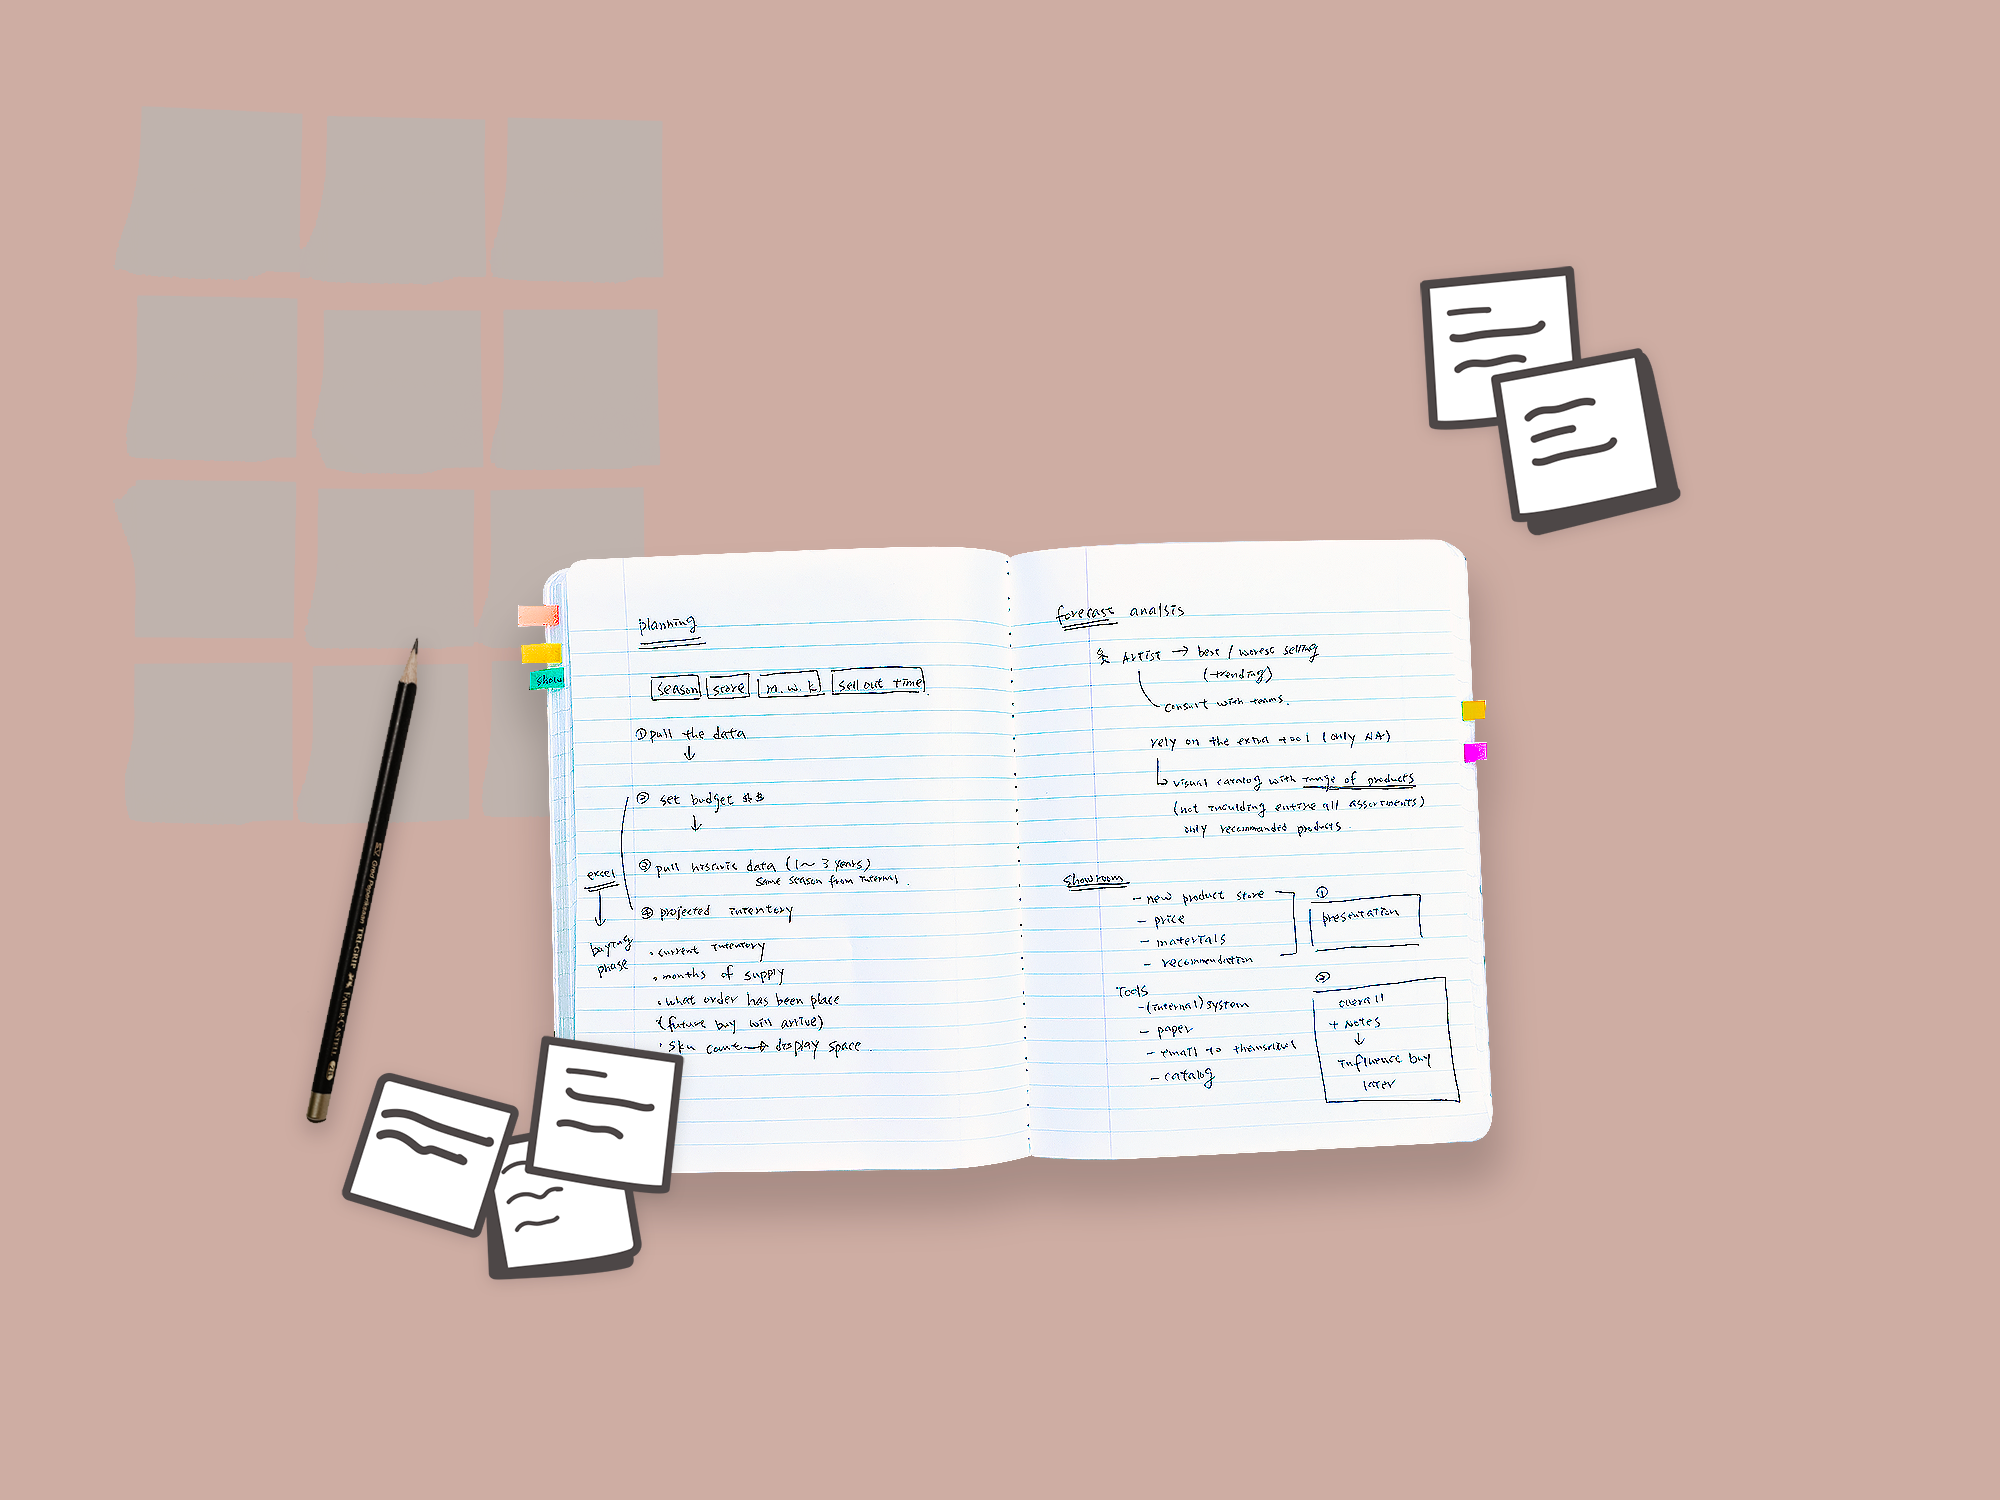 planning
season store m.w.k sell out time
① pull the data
② set budget $$
③ pull historic data (1~3 years)
same season from internal.
④ projected inventory
excel
buying
phase
• current inventory
• months of supply
• what order has been place
(future buy will arrive)
• sku count → display space.
show
forecast analsis
Artist → best / worest selling
(trending)
consult with teams.
rely on the extra tool (only NA)
visual catalog with range of products
(not inculding entire all assortments)
only recommanded products.
showroom
- new product store
- price
- materials
- recommendation
① presentation
Tools
- (internal) system
- paper
- email to themselves
- catalog
②
overall
+ notes
↓
influence buy
later
TRI-GRIP FABER-CASTELL